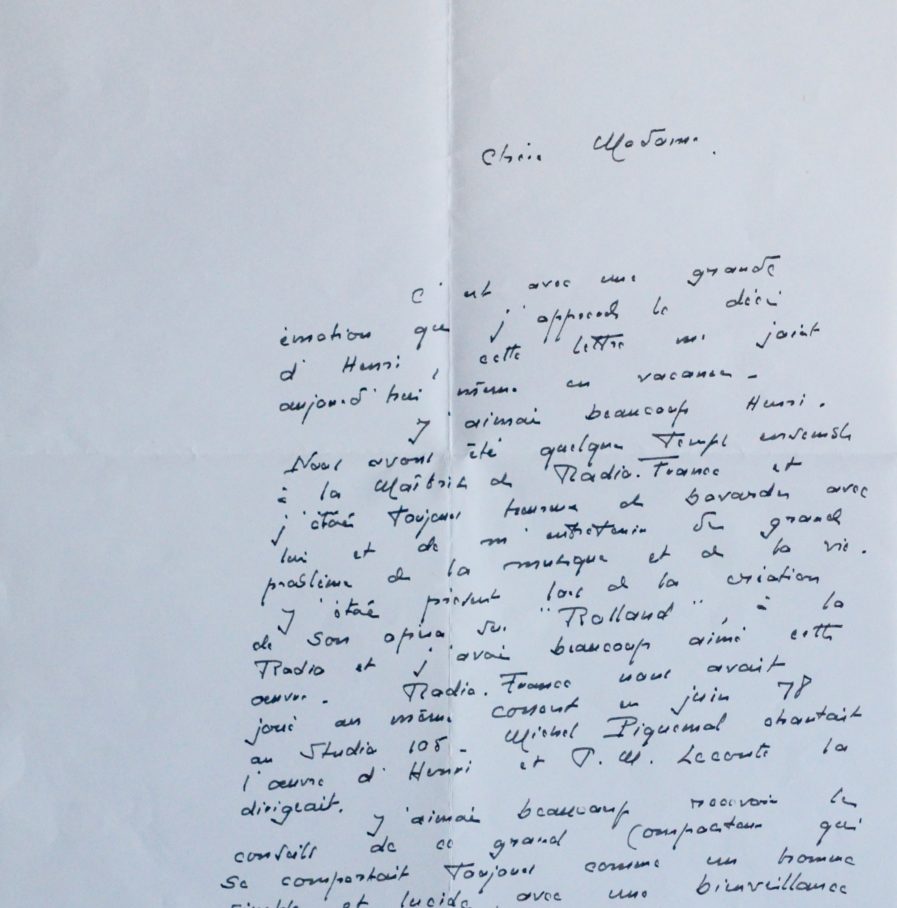 Chère Madame.
C'est avec une grande
émotion que j'apprends le décès
d'Henri, cette lettre me joint
aujourd'hui même en vacances -
J'aimais beaucoup Henri.
Nous avons été quelques Temps ensemble
à la Maîtrise de Radio.France et
j'étais Toujours heureux de bavarder avec
lui et de m'entretenir des grands
problèmes de la musique et de la vie.
J'étais présent lors de la création
de son opéra sur "Rolland", à la
Radio et j'avais beaucoup aimé cette
œuvre. Radio.France nous avait
joué au même concert en juin 78
au Studio 105 - Michel Piquemal chantait
l'œuvre d'Henri et P. M. Leconte la
dirigeait.
J'aimais beaucoup recevoir les
conseils de ce grand Compositeur qui
se comportait Toujours comme un homme
simple et lucide, avec une bienveillance